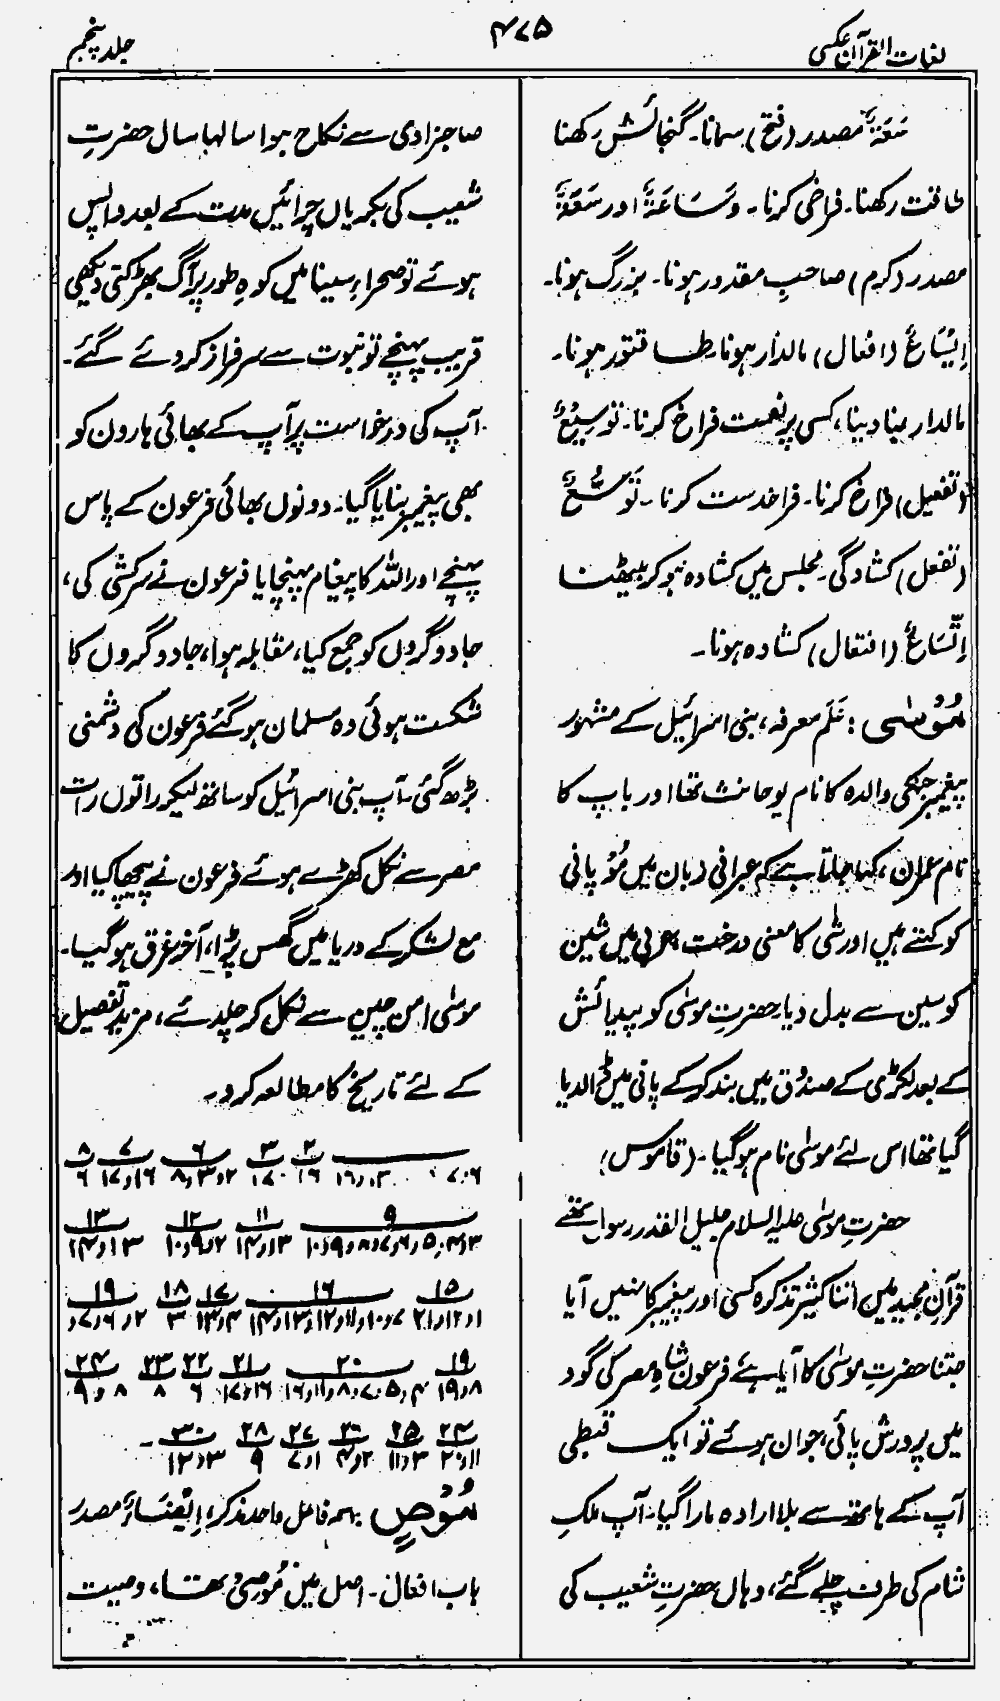 لغات القرآن عکسی
۴۷۵
جلد پنجم
سَعَۃٌ مصدر (فتح) سمانا۔ گنجائش رکھنا
طاقت رکھنا۔ فراخی کرنا۔ وَسَاعَۃٌ اور سَعَۃٌ
مصدر (کرم) صاحبِ مقدور ہونا۔ بزرگ ہونا۔
اِیْسَاعٌ (افعال) مالدار ہونا۔ طاقتور ہونا۔
مالدار بنا دینا، کسی پر نعمت فراخ کرنا۔ تَوْسِیْعٌ
(تفعیل) فراخ کرنا۔ فراخدست کرنا۔ تَوَسُّعٌ
(تفعل) کشادگی۔ مجلس میں کشادہ ہو کر بیٹھنا
اِتِّسَاعٌ (افتعال) کشادہ ہونا۔
مُوْسٰی : عَلَم معرفہ، بنی اسرائیل کے مشہور
پیغمبر جنکی والدہ کا نام یوحانث تھا اور باپ کا
نام عمران، کہا جاتا ہے کہ عبرانی زبان میں مُوْ پانی
کو کہتے ہیں اور شٰی کا معنی درخت، عربی میں شین
کو سین سے بدل دیا۔ حضرتِ موسٰی کو پیدائش
کے بعد لکڑی کے صندوق میں بند کر کے پانی میں ڈالدیا
گیا تھا اس لئے موسٰی نام ہو گیا۔ (قاموس)
حضرتِ موسٰی علیہ السلام جلیل القدر رسول تھے
قرآنِ مجید میں اتنا کثیر تذکرہ کسی اور پیغمبر کا نہیں آیا
جتنا حضرتِ موسٰی کا آیا ہے فرعون شاہِ مصر کی گود
میں پرورش پائی، جوان ہوئے تو ایک قبطی
آپ کے ہاتھ سے بلا ارادہ مارا گیا۔ آپ ملکِ
شام کی طرف چلے گئے، وہاں حضرتِ شعیب کی
صاحبزادی سے نکاح ہوا سالہا سال حضرتِ
شعیب کی بکریاں چرائیں مدت کے بعد واپس
ہوئے تو صحراءِ سینا میں کوہِ طور پر آگ بھڑکتی دیکھی
قریب پہنچے تو نبوت سے سرفراز کر دئے گئے۔
آپ کی درخواست پر آپ کے بھائی ہارون کو
بھی پیغمبر بنایا گیا۔ دونوں بھائی فرعون کے پاس
پہنچے اور اللہ کا پیغام پہنچایا فرعون نے سرکشی کی،
جادوگروں کو جمع کیا، مقابلہ ہوا، جادوگروں کا
شکست ہوئی وہ مسلمان ہو گئے فرعون کی دشمنی
بڑھ گئی۔ آپ بنی اسرائیل کو ساتھ لیکر راتوں رات
مصر سے نکل کھڑے ہوئے فرعون نے پیچھا کیا اور
مع لشکر کے دریا میں گھس پڑا، آخر غرق ہو گیا۔
موسٰی امن چین سے نکل کر چلدئے، مزید تفصیل
کے لئے تاریخ کا مطالعہ کرو۔
۲ ۳ ۶ ۷ ۸
۹ ۱۱ ۱۲ ۱۳
۱۵ ۱۶ ۱۷ ۱۸ ۱۹
۱۹ ۲۰ ۲۱ ۲۲ ۲۳ ۲۴
۲۴ ۲۵ ۲۶ ۲۷ ۲۸ ۳۰
مُوْصٍ اسم فاعل واحد مذکر، اِیْصَاءٌ مصدر
باب افعال۔ اصل میں مُوْصِیٌ تھا، وصیت